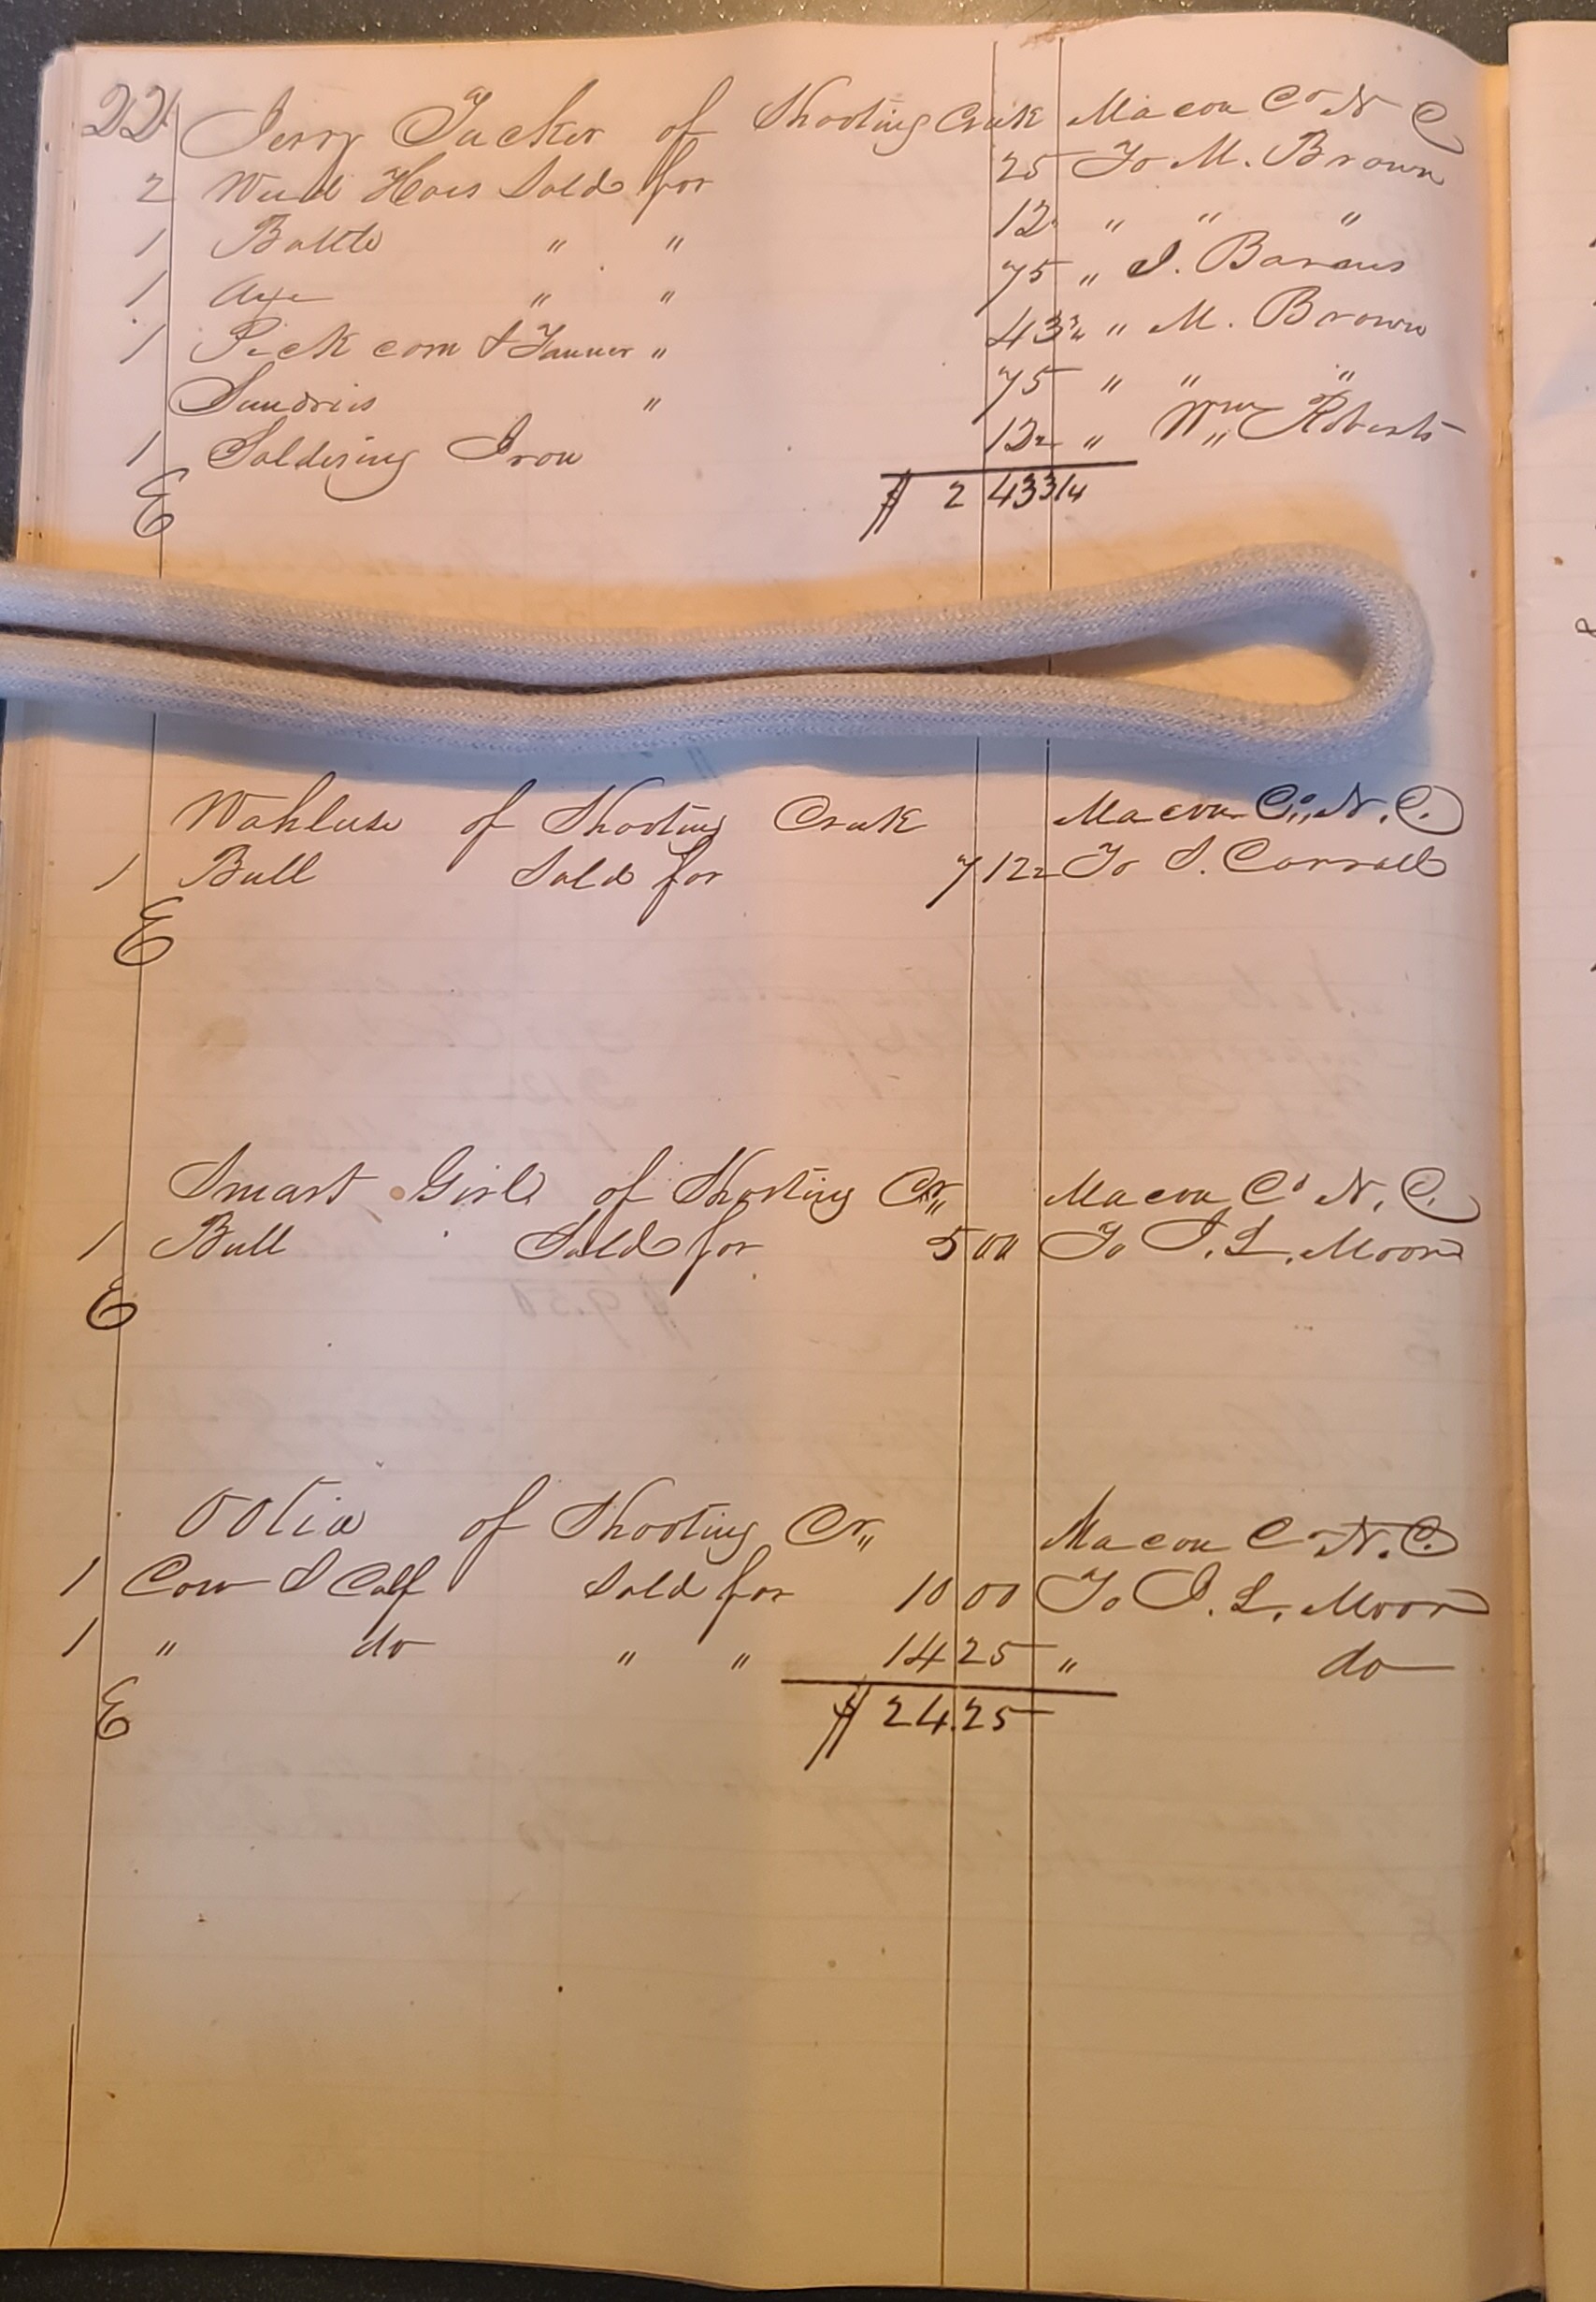 22
Jerry Tucker of Shooting Creek Macon Co N C
2 Weed Hoes Sold for 25 To M. Brown
1 Bottle " " 12½ " " "
1 Axe " " 75 " J.
1 Peck corn & Fanner " 43¾ " M. Brown
Sundries " 75 " " "
1 Soldering Iron 12½ " Wm Roberts
$ 2 43 3/4
E
of Shooting Creek Macon Co N. C.
1 Bull Sold for 7 12½ To S. Carroll
E
Smart Girl of Shooting Cr Macon Co N. C.
1 Bull Sold for 5 00 To J. L. Moore
E
Ootia of Shooting Cr Macon Co N. C.
1 Cow & Calf Sold for 10 00 To J. L. Moore
1 " do " " 14 25 " do
E $ 24.25